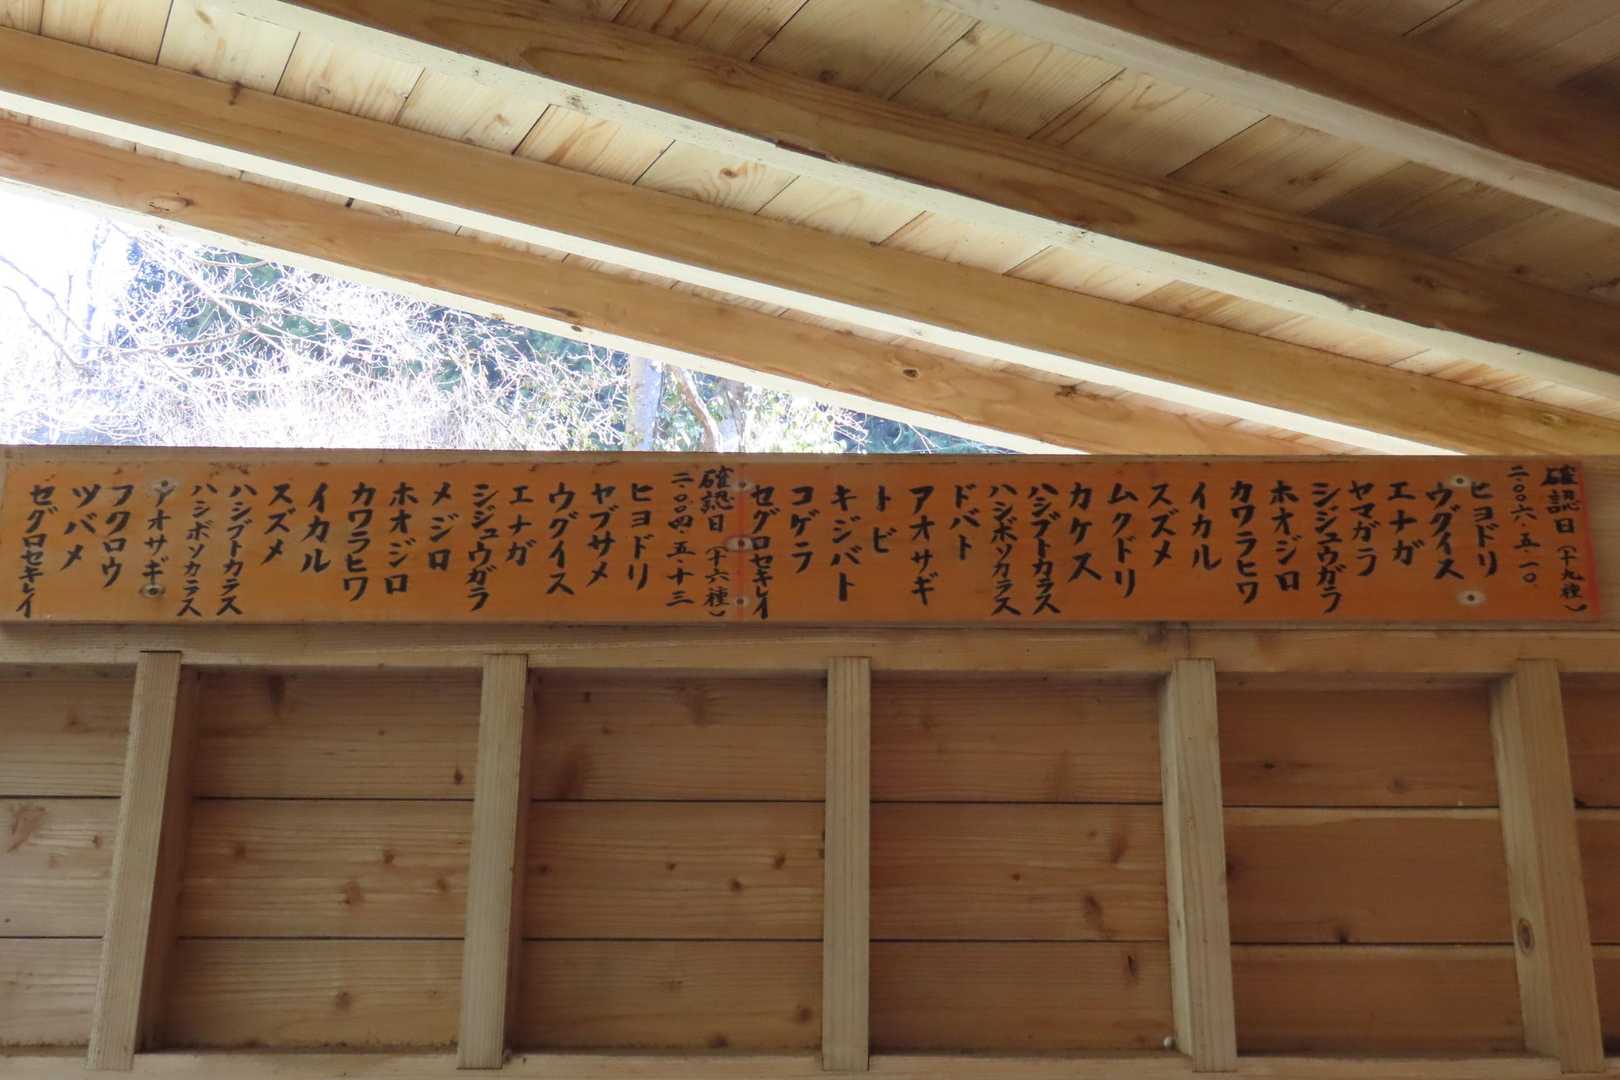 確認日(十九種)
二〇〇六.五.一〇.
ヒヨドリ
ウグイス
エナガ
ヤマガラ
シジュウガラ
ホオジロ
カワラヒワ
イカル
スズメ
ムクドリ
カケス
ハシブトカラス
ハシボソカラス
ドバト
アオサギ
トビ
キジバト
コゲラ
セグロセキレイ
確認日(十六種)
二〇〇四.五.十三
ヒヨドリ
ヤブサメ
ウグイス
エナガ
シジュウガラ
メジロ
ホオジロ
カワラヒワ
イカル
スズメ
ハシブトカラス
ハシボソカラス
アオサギ
フクロウ
ツバメ
セグロセキレイ